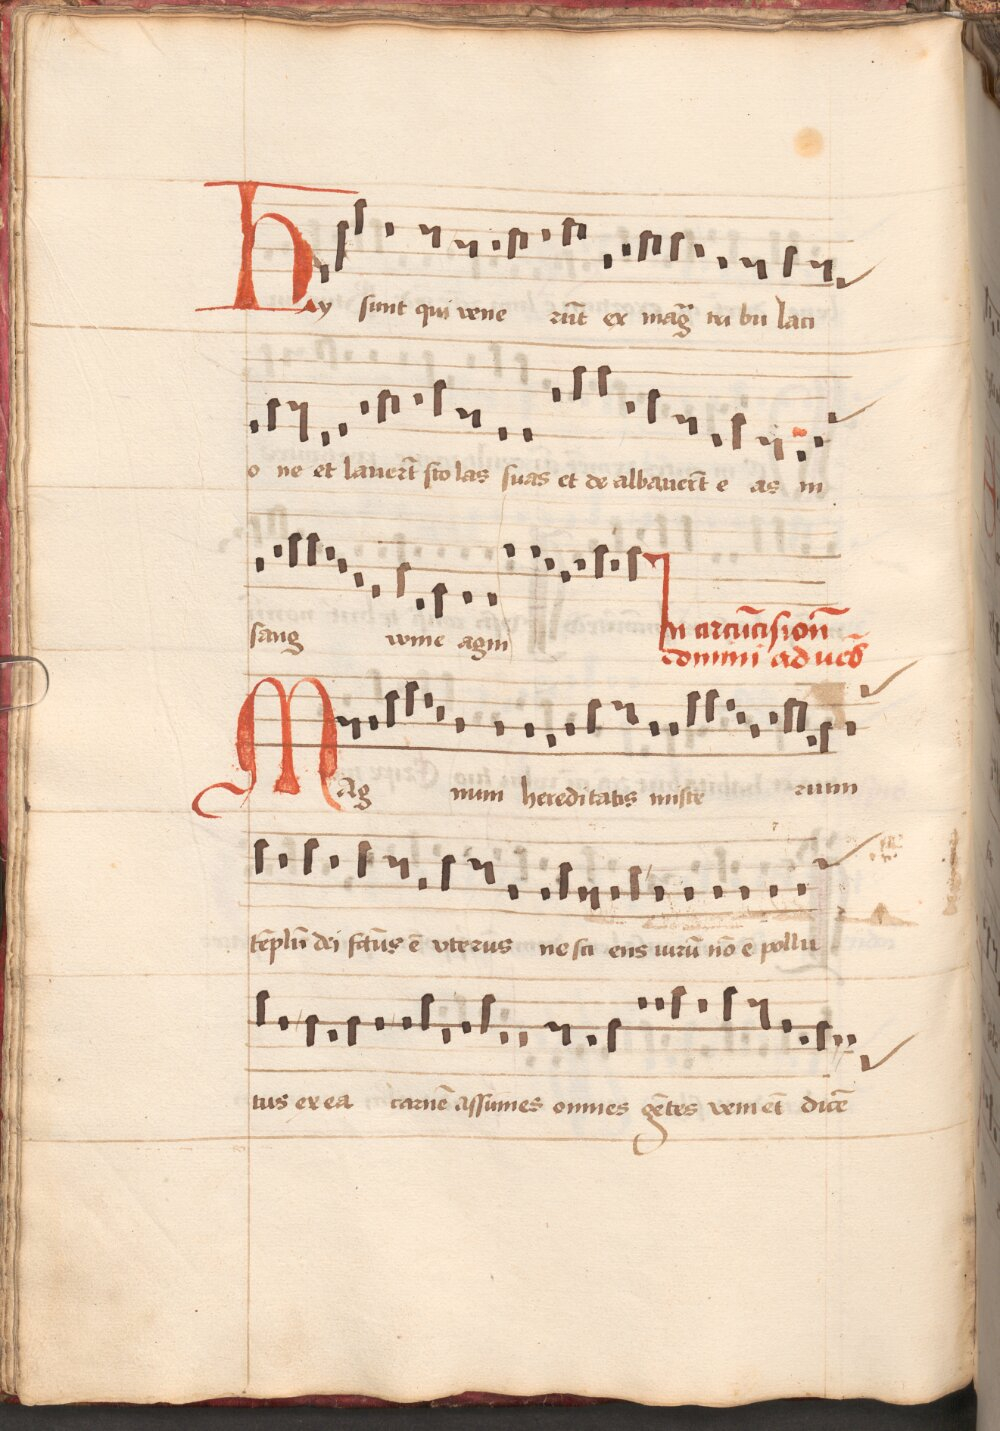 Hy sunt qui vene rūt ex mag̅ tri bu laci
o ne et lauert̄ sto las suas et de albauert̄ e as in
sang wine agni
In circūcision̄
domini ad ueśb
MAg num hereditatis miste rium
tēplū dei fctūs ē vterus ne sci ens uirū nō ē pollu
tus ex ea carnē assumes omnes gētes venient̄ dicē